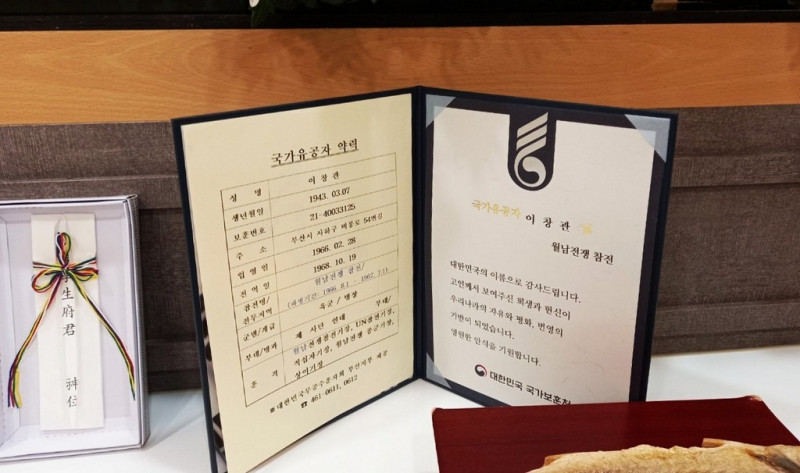 學生府君 神位
국가유공자 약력
성 명 이 창 관
생년월일 1943. 03.07
보훈번호 21-40033125
주 소 부산시 사하구 비봉로 54번길
입 영 일 1966. 02. 28
전 역 일 1968. 10. 19
참전명/전투지역 월남전쟁 참전/
(파병기간: 1966. 8.1 - 1967. 7.11
군별/계급 육군 / 병장
부대/병과 제 사단 연대 부대/
훈 격 월남전쟁참전기장, UN참전기장,
상이기장
※대한민국무공수훈자회 부산지부 제공
☎ 461-0611, 0612
국가유공자 이 창 관 님
월남전쟁 참전
대한민국의 이름으로 감사드립니다.
고인께서 보여주신 희생과 헌신이
우리나라의 자유와 평화, 번영의
기반이 되었습니다.
영원한 안식을 기원합니다.
대한민국 국가보훈처